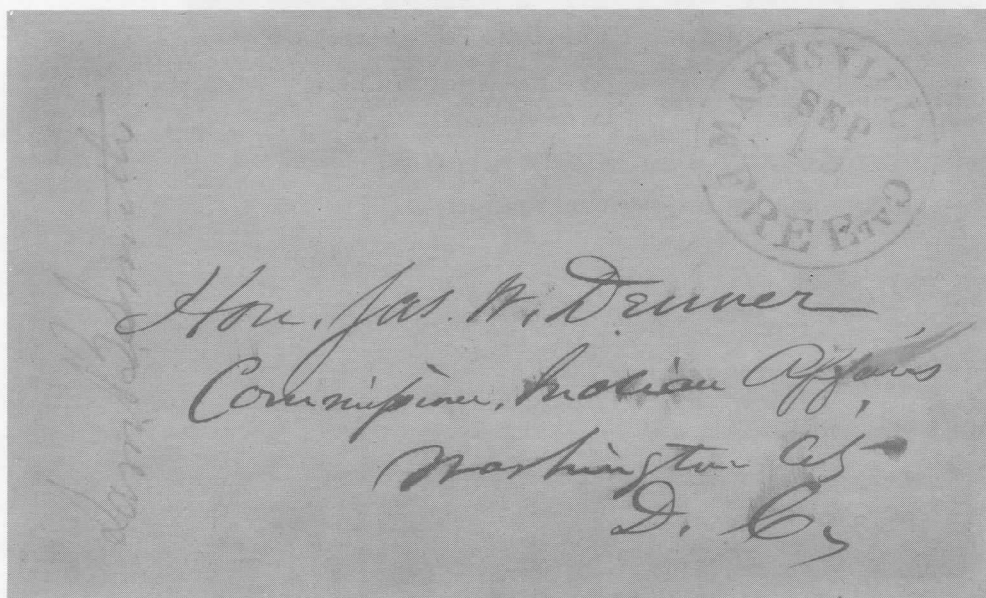 MARYSVILL
SEP
FREE
CAL
Hon. Jas. W. Denver
Commissioner, Indian Affairs,
Washington City
D. C,